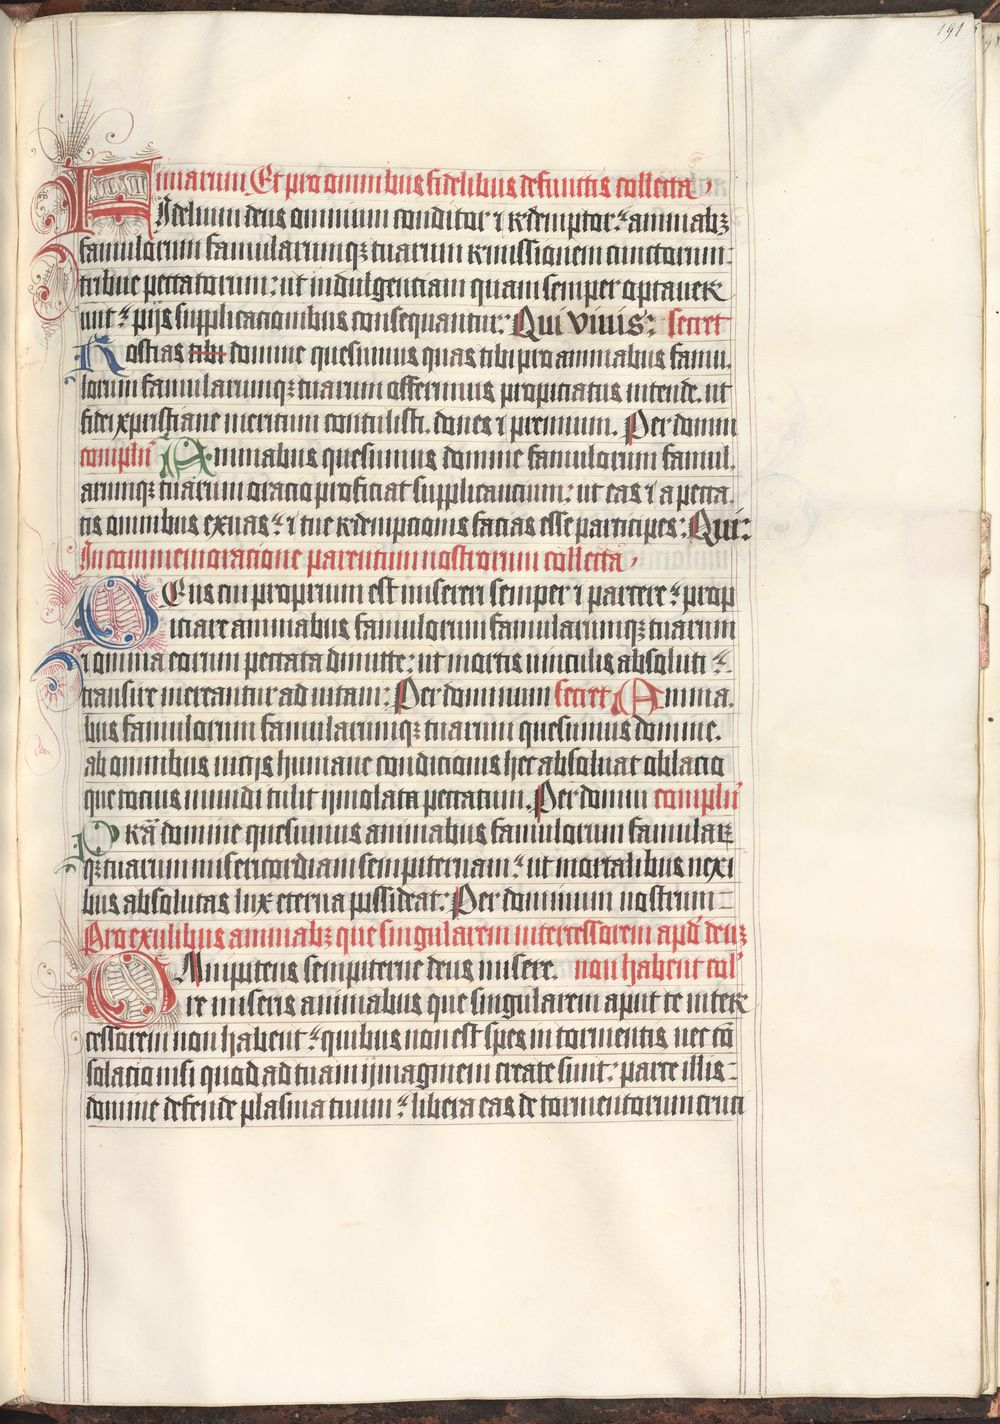 191
imarum Et pro omnibus fidelibus defunctis collecta
Fidelium deus omnium conditor ⁊ redemptor: animabꝫ
famulorum famularumqꝫ tuarum remissionem cunctorum:
tribue peccatorum: ut indulgentiam quam semper optauer
unt: pijs supplicationibus consequantur: Qui viuis: secret
Hostias tibi domine quesumus quas tibi pro animabus famu.
lorum famularumqꝫ tuarum offerimus propiciatus intende. ut
fidei xpristiane meritum contulisti. dones ⁊ premium. Per domin
complen̄ Animabus quesumus domine famulorum famul.
arumqꝫ tuarum oracio proficiat supplicancium: ut eas ⁊ a pecca.
tis omnibus exuas: ⁊ tue redempcionis facias esse participes: Qui:
In commemoracione parentum nostrorum collecta
Deus cui proprium est misereri semper ⁊ parcere: prop
iciare animabus famulorum famularumqꝫ tuarum
⁊ omnia eorum peccata dimitte: ut mortis uinculis absoluti:
transire mereantur ad uitam: Per dominum secret Anima.
bus famulorum famularumqꝫ tuarum quesumus domine.
ab omnibus uicijs humane condicionis hec absoluat oblacio
que tocius mundi tulit ijmolata peccatum. Per domin complen̄
Prestā domine quesumus animabus famulorum famular
qꝫ tuarum misericordiam sempiternam: ut mortalibus nexi
bus absolutas lux eterna possideat: Per dominum nostrum:
Pro exulibus animabꝫ que singularem intercessorem apd̄ deuꝫ
Omnipotens sempiterne deus misere. non habent col
re miseris animabus que singularem aput te inter
cessorem non habent: quibus non est spes in tormentis nec cō
solacio nisi quod ad tuam ijmaginem create sunt: parce illis:
domine defende plasma tuum: libera eas de tormentorum cruci